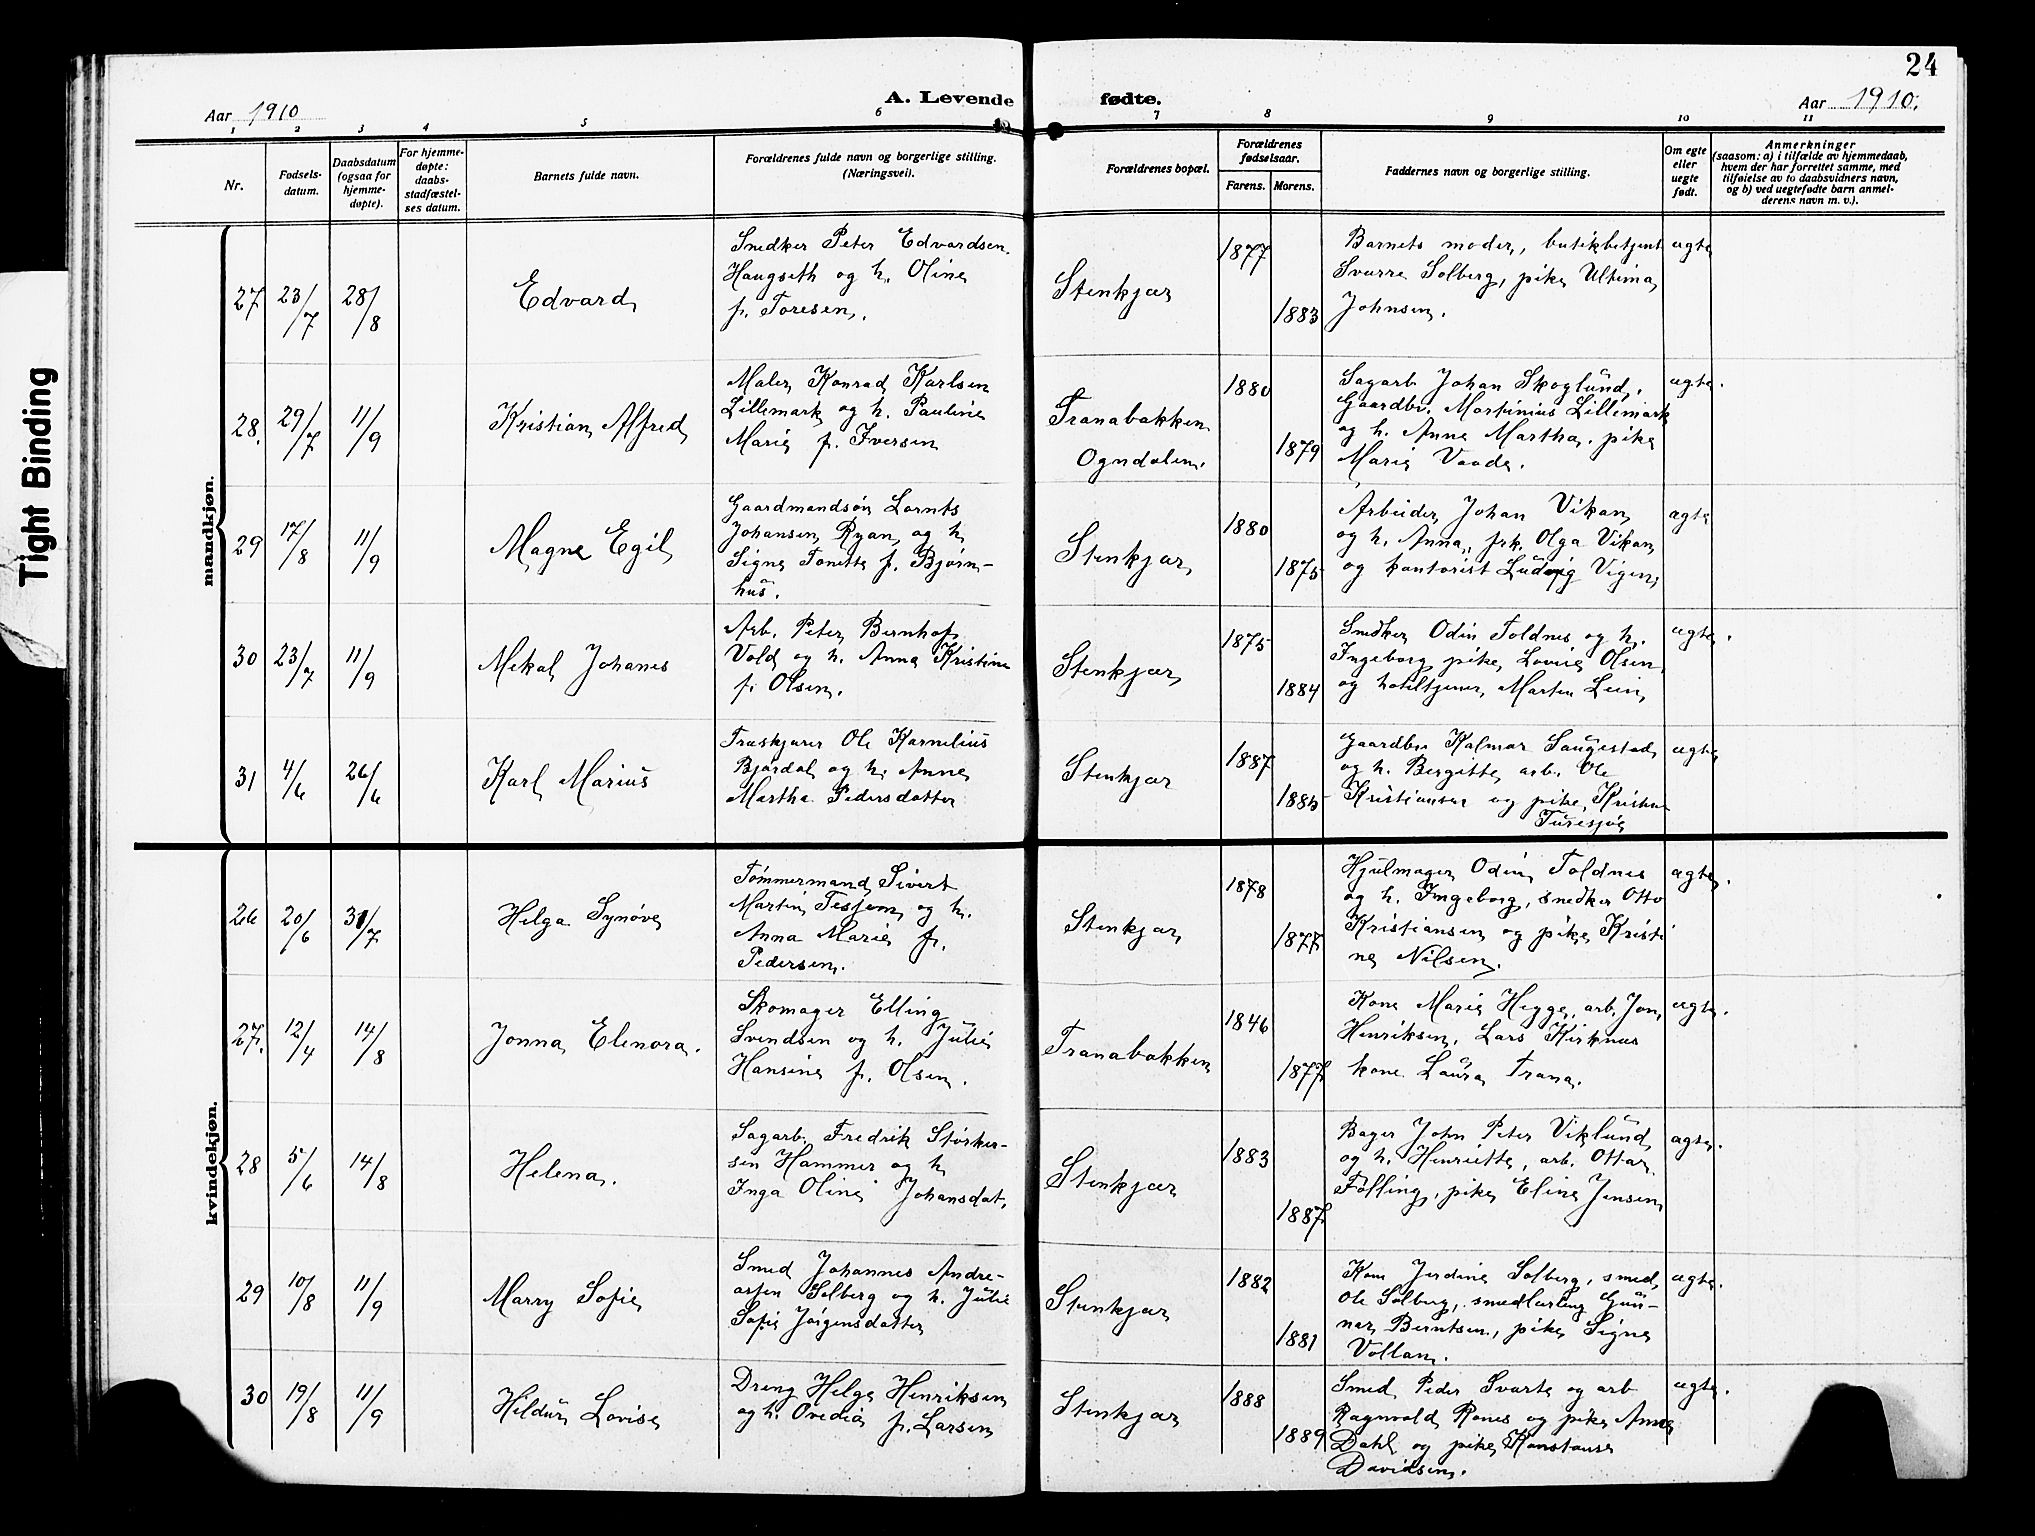 24
Aar 1910
A. Levende fødte.
Aar 1910.
1 2 3 4 5 6 7 8 9 10 11
Nr.
Fødsels-
datum.
Daabsdatum
(ogsaa for
hjemme-
døpte).
For hjemme-
døpte:
daabs-
stadfæstel-
ses datum.
Barnets fulde navn.
Forældrenes fulde navn og borgerlige stilling.
(Næringsvei).
Forældrenes bopæl.
Forældrenes
fødselsaar.
Farens. Morens.
Faddernes navn og borgerlige stilling.
Om egte
eller
uegte
født.
Anmerkninger
(saasom: a) i tilfælde av hjemmedaab,
hvem der har forrettet samme, med
tilføielse av to daabsvidners navn,
og b) ved uegtefødte barn anmel-
derens navn m. v.).
Tight Binding
mandkjøn.
27 23/7 28/8 Edvard
Snedker Peter Edvardsen
Haugseth og h. Oline
f. Toresen.
Stenkjær
1877
1883
Barnets moder, butikbetjent
Sverre Solberg, pike Ultima
Johnsen.
ægte
28. 29/7 11/9 Kristian Alfred
Maler Konrad Karlsen
Lillemark og h. Pauline
Marie f. Iversen
Tranabakken
Ogndalen.
1880
1879
Sagarb. Johan Skoglund,
Gaardbr. Martinius Lillemark
og h. Anne Martha. pike
Marie Vaade.
ægte.
29 17/8 11/9 Magne Egil
Gaardmandsøn Lornts
Johansen Ryan og h.
Signe Tonette f. Bjørn-
hus.
Stenkjær
1880
1875
Arbeider Johan Vikan
og h. Anna, frk. Olga Vikan
og kontorist Ludvig Vigen.
ægte
30 23/7 11/9 Mekal Johanes
Arb. Peter Bernhof
Vold og h. Anna Kristine
f. Olsen.
Stenkjær
1875
1884
Snedker Odin Toldnes og h.
Ingeborg pike Lovise Olsen
og hoteltjener Marten Lein
ægte.
31 4/6 26/6 Karl Marius
Træskjærer Ole Kornelius
Bjørdal og h. Anne
Martha Pedersdatter
Stenkjær
1887
1885
Gaardbr. Kalmar Saugestad
og h. Bergitte, arb. Ole
Kristiansen og pike Kristine
ægte
kvindekjøn.
26 20/6 31/7 Helga Synøve
Tømmermand Sivert
Martin Tesjem og h.
Anna Marie f.
Pedersen.
Stenkjær
1878
1877
Hjulmager Odin Toldnes
og h. Ingeborg, snedker Otto
Kristiansen og pike Kristi
ne Nilsen.
ægte.
27. 12/4 14/8 Jonna Elenora.
Skomager Elling
Svendsen og h. Julie
Hansine f. Olsen.
Tranabakken
1846
1877
Kone Marie Hegge, arb. Jon
Henriksen, Lars Kirknes
kone Laura Trana.
ægte.
28 5/6 14/8 Helena.
Sagarb. Fredrik Størker-
sen Hammer og h.
Inga Oline Johansdat.
Stenkjær
1883
1887
Bager John Peter Viklund
og h. Henriette, arb. Ottar
Følling, pike Eline Jensen
ægte.
29 10/8 11/9 Marry Sofie
Smed Johannes Andre-
assen Solberg og h. Julie
Sofie Jørgensdatter
Stenkjær
1882
1881
Kone Jerdine Solberg, smed
Ole Solberg, smedlærling Gun-
nar Berntsen, pike Signe
Vollan.
ægte.
30 19/8 11/9 Hildur Lovise
Dreng Helge Henriksen
og h. Ovedia f. Larsen
Stenkjær
1888
1889
Smed Peder Svarte og arb
Ragnvald Rones og pike Anna
Dahl og pike Konstanse
Davidsen.
ægte.